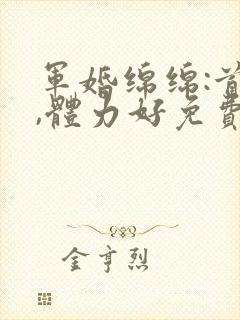 軍婚綿綿:首
,體力好免費
金亨烈